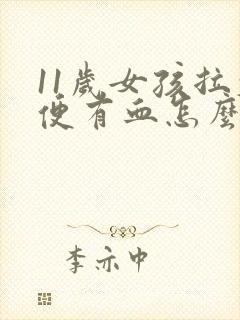 11歲女孩拉
便有血怎麼
李亦中